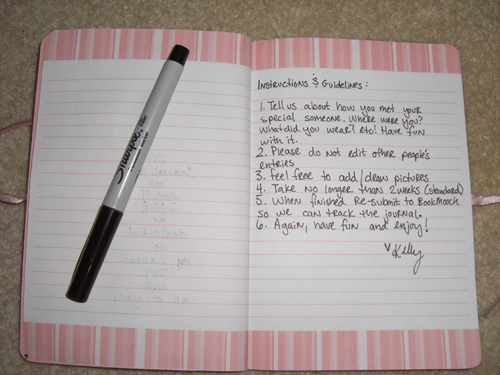 Sharpie
Instructions & Guidelines:
1. Tell us about how you met your
special someone. Where were you?
What did you wear? etc! Have fun
with it.
2. Please do not edit other people's
entries
3. feel free to add/draw pictures
4. Take no longer than 2 weeks (standard)
5. When finished Re-submit to BookMooch
so we can track the journal.
6. Again, have fun and enjoy!
Kelly